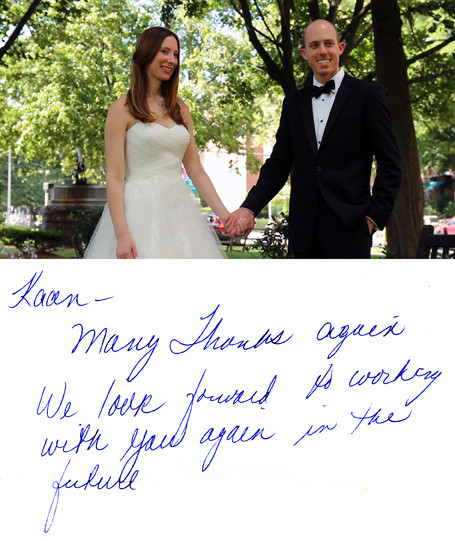 Kaan -
Many Thanks again
We look forward to working
with you again in the
future